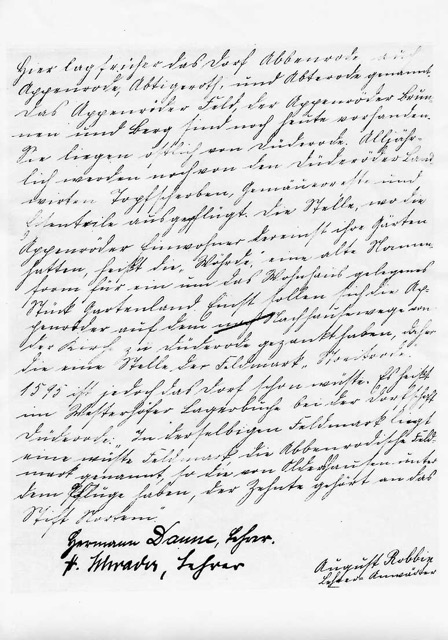 Hier lag früher das Dorf Abbenrode, auch
Appenrode, Abtigerots, und Abterode genannt.
Das Appenröder Feld, der Appenröder Brun-
nen und Berg sind noch heute vorhanden.
Sie liegen östlich von Düderode. Alljähr-
lich werden noch von den Düderöder Land
wirten Topfscherben, Gemäuerreste und
Eisenteile ausgepflügt. Die Stelle, wo die
Appenröder Einwohner dereinst ihre Gärten
hatten, heißt die „Wöhrde", eine alte Namen
form für ein um das Wohnhaus gelegenes
Stück Gartenland. Einst sollen sich die Ap-
penröder auf dem nach Nachhausewege von
der Kirche zu Düderode gezankt haben, daher
die eine Stelle der Feldmark
1595 ist jedoch das Dorf schon wüste. Es heißt
im Westerhöfer Lagerbuche bei der Dorfschaft
Düderode: „In derselbigen Feldmark liegt
eine wüste Feldmark die Abbenrodische Feld
mark genannt, so die von Oldershausen unter
dem Pfluge haben, der Zehnte gehört an das
Stift
Hermann Daume,
Lehrer
August
Lehrer Anwärter